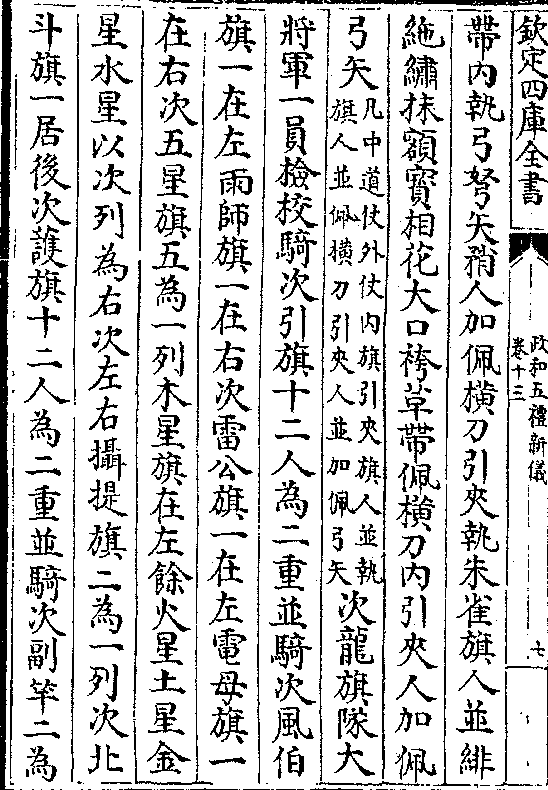 欽定四庫全書
政和五禮新儀
卷十三
七
帶内執弓弩矢矟人加佩横刀引夾執朱雀旗人並緋
絁繡抹額寳相花大口袴草帶佩横刀内引夾人加佩
弓矢凡中道仗外仗内旗引夾旗人並執
旗人並佩横刀引夾人並加佩弓矢次龍旗隊大
將軍一員撿校騎次引旗十二人為二重並騎次風伯
旗一在左雨師旗一在右次雷公旗一在左電母旗一
在右次五星旗五為一列木星旗在左餘火星土星金
星水星以次列為右次左右攝提旗二為一列次北
斗旗一居後次護旗十二人為二重並騎次副竿二為